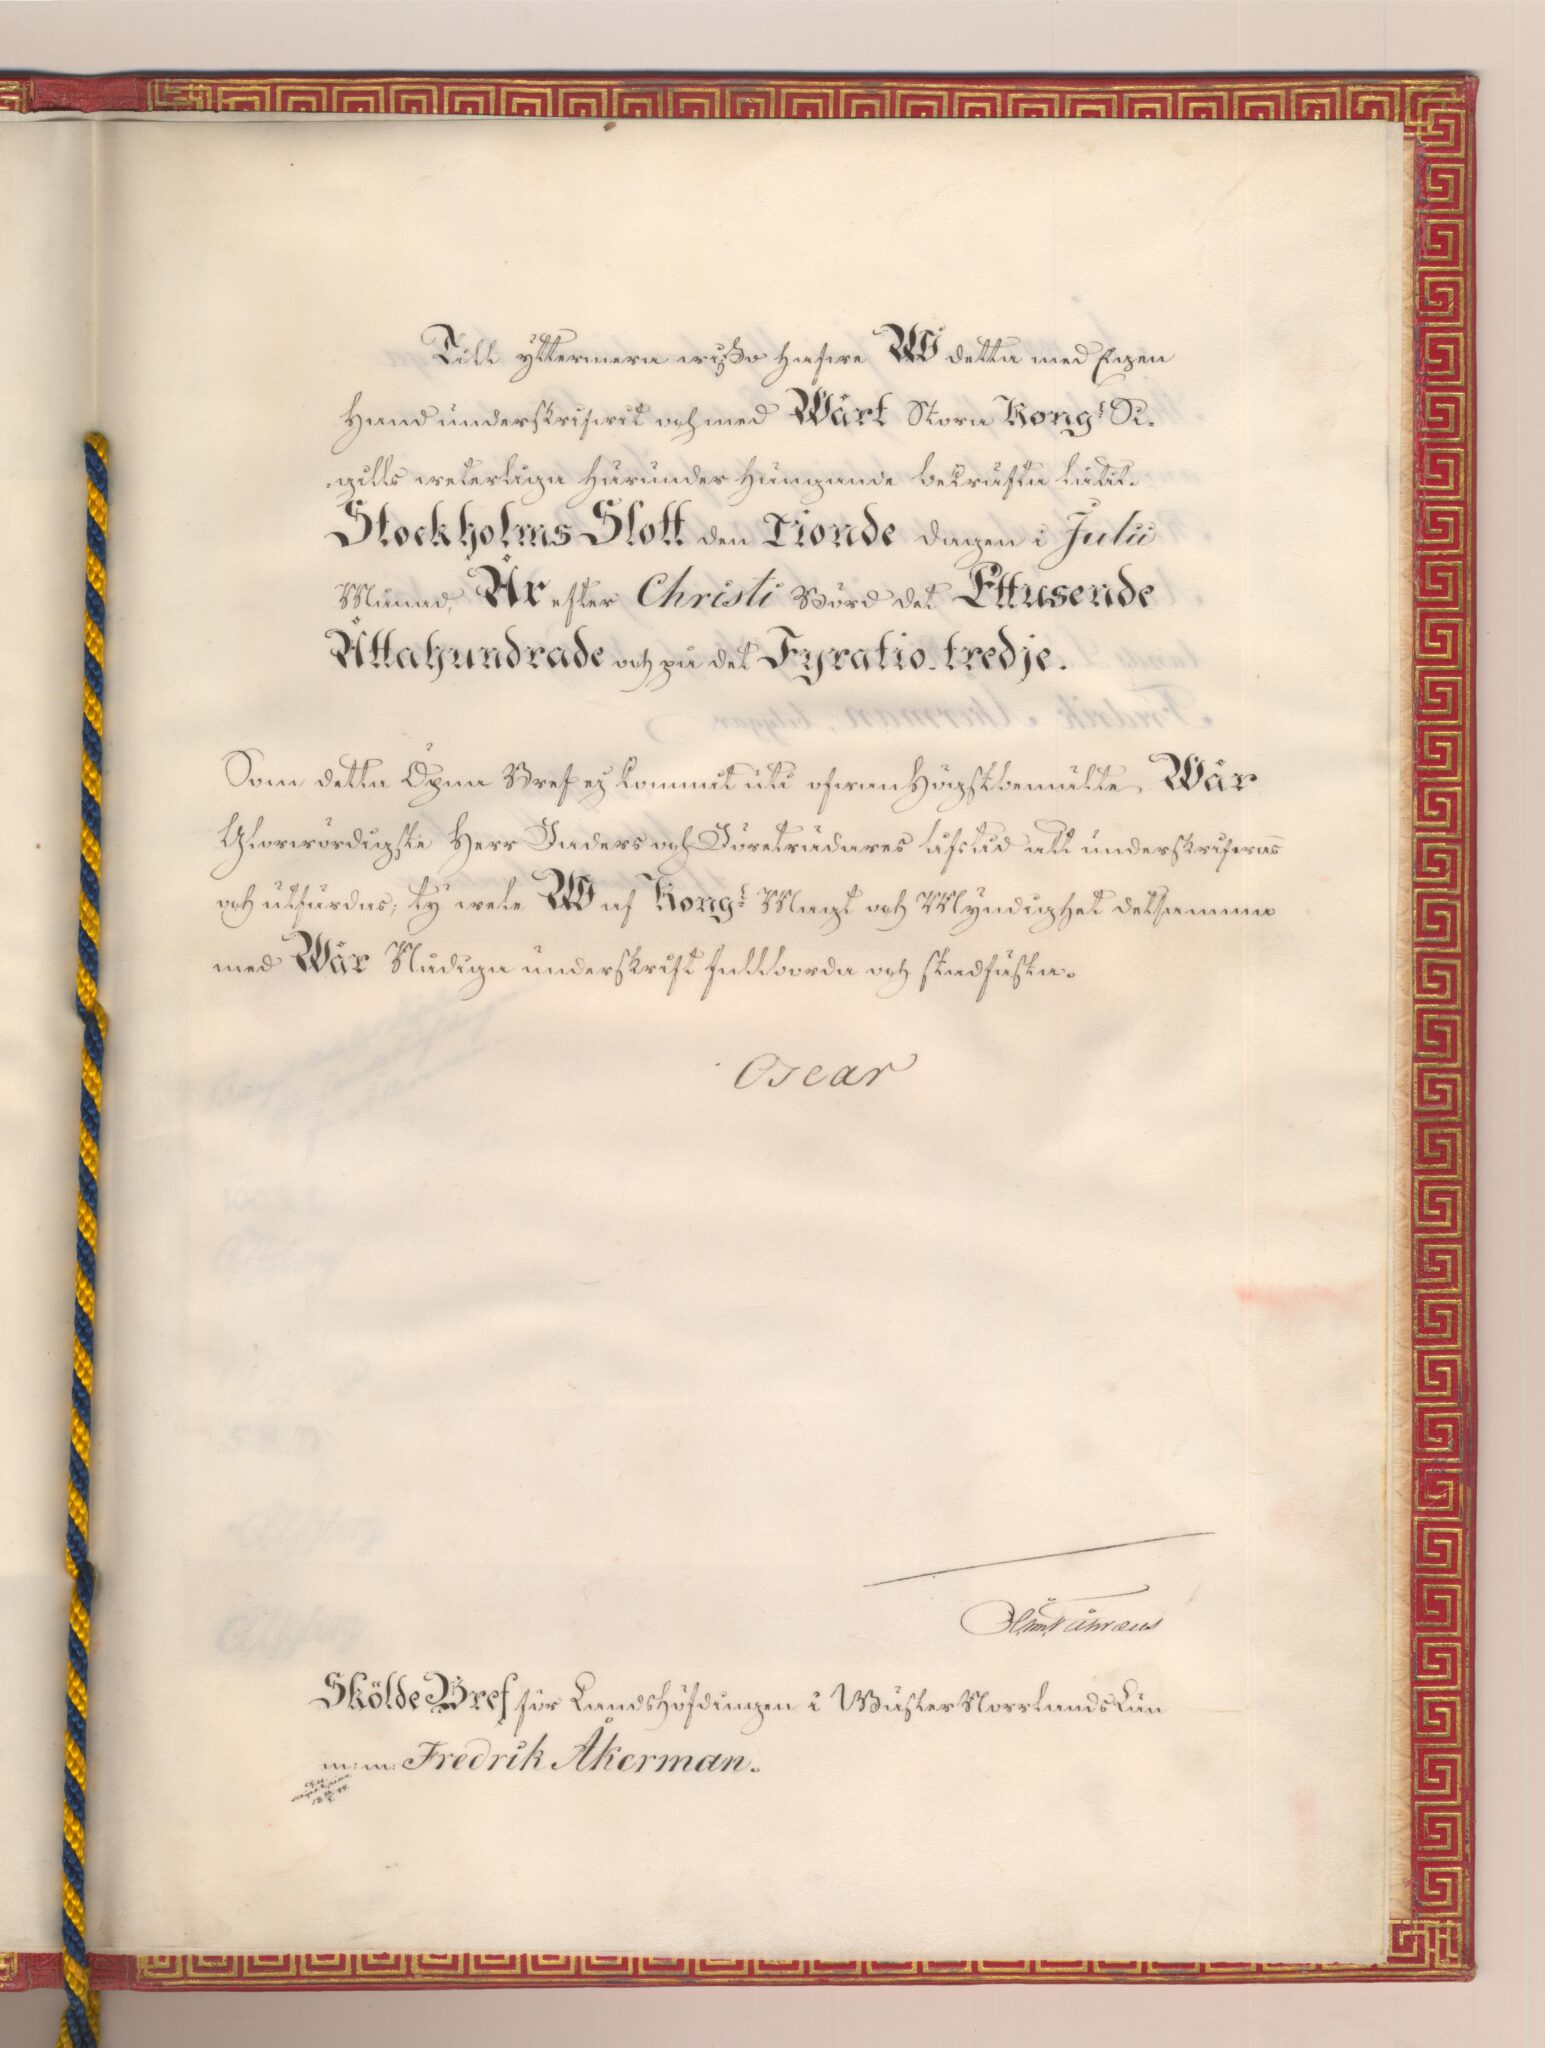 Till yttermera wisso hafwe Wi detta med Egen
Hand underskrifwit och med Wårt Stora Kongl. Si-
gills weterliga härunder hängande bekräfta låtit.
Stockholms Slott den Tionde dagen i Julii
Månad, År efter Christi Börd det Ettusende
Åttahundrade och på det Fyratio-tredje.
Som detta Öpna Bref ej kommit uti ofwanHögstbemälte, Wår
Glorwördigste Herr Faders och Företrädares lifstid att underskrifwas
och utfärdas; ty wele Wi af Kongl. Magt och Myndighet detsamma
med Wår Nådiga underskrift fullborda och stadfästa.
Oscar
Skölde Bref för Landshöfdingen i WästerNorrlands Län
m: m: Fredrik Åkerman.